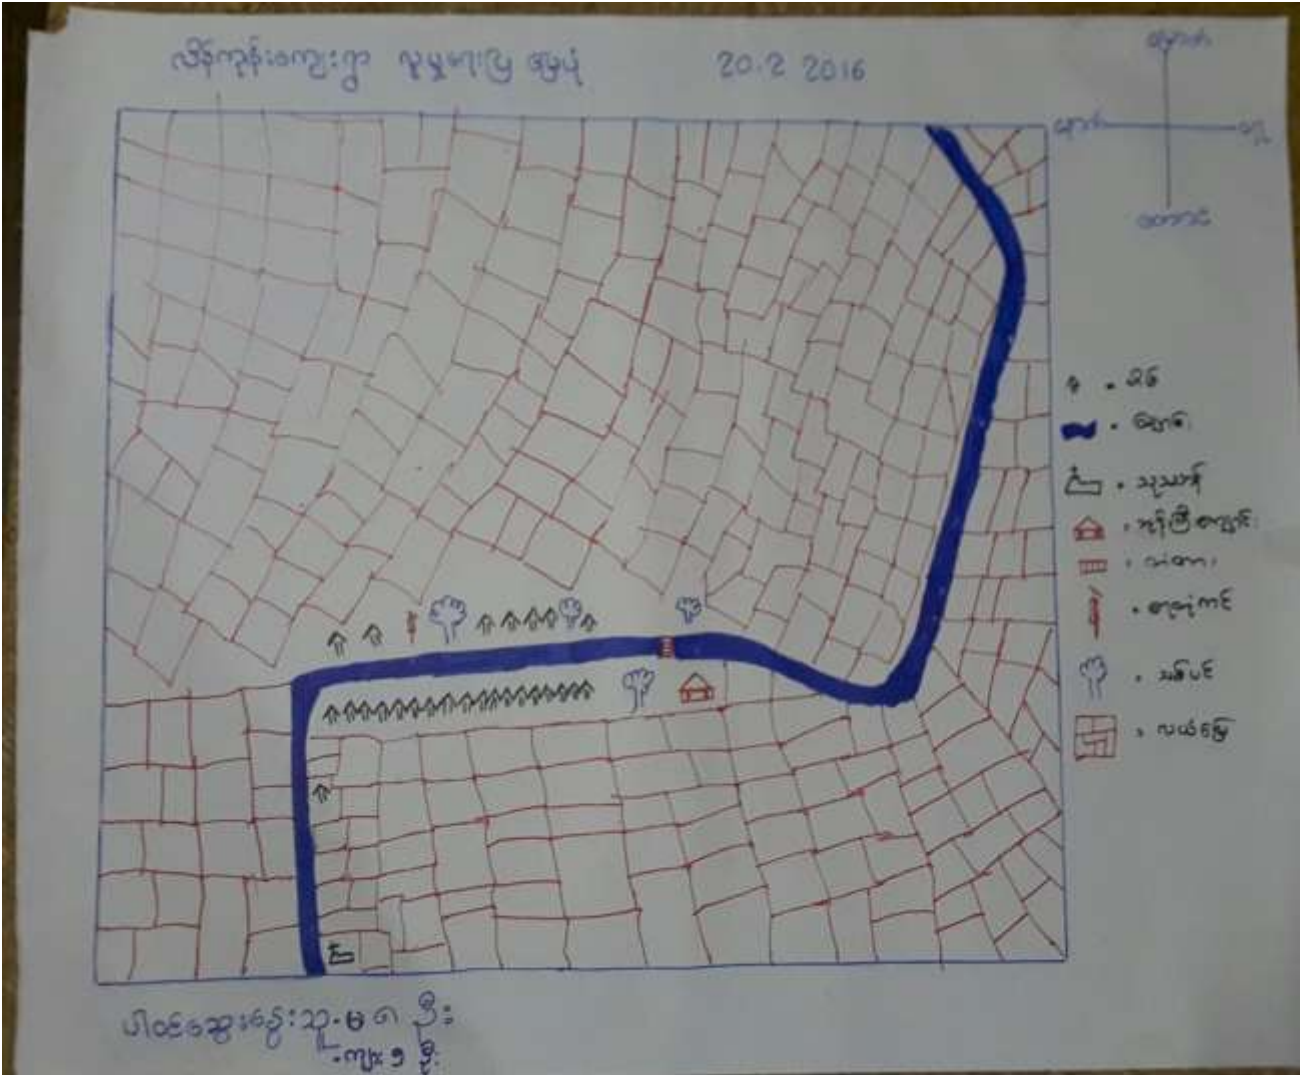 လိန်ကုန်းကျေးရွာ လူမှုရေးပြ မြေပုံ 20.2 2016
မြောက်
နောက် ရှေ့
တောင်
= အိမ်
= ချောင်း
= သုသာန်
= ဘုန်းကြီးကျောင်း
= တံတား
= ဓာတ်တိုင်
= သစ်ပင်
= လယ်မြေ
ပါဝင်ဆွေးနွေးသူ - မ ၈ ဦး
- ကျား ၅ ဦး